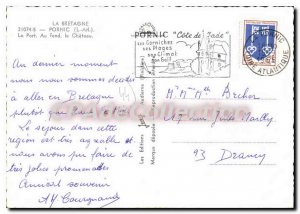 LA BRETAGNE
21074-B - PORNIC (L.-Atl.)
Le Port. Au fond, le Château.
PORNIC "Côte de Jade"
ses Corniches
ses Plages
son Climat
son Golf
LOIRE ATLANTIQUE
Au dernier moment
nous nous sommes décidés
à aller en Bretagne
plutôt que
Le séjour dans cette
région est très agréable et
nous avons pu faire de
très jolies promenades
Amical souvenir
Mr Mme Archer
rue Jules
93 Drancy